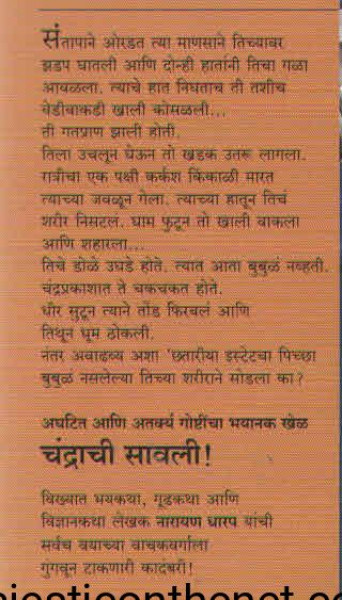 संतापाने ओरडत त्या माणसाने तिच्यावर
झडप घातली आणि दोन्ही हातांनी तिचा गळा
आवळला. त्याचे हात निघताच ती तशीच
वेडीवाकडी खाली कोसळली...
ती गतप्राण झाली होती.
तिला उचलून घेऊन तो खडक उतरू लागला.
रात्रीचा एक पक्षी कर्कश किंकाळी मारत
त्याच्या जवळून गेला. त्याच्या हातून तिचं
शरीर निसटलं. घाम फुटून तो खाली वाकला
आणि शहारला...
तिचे डोळे उघडे होते. त्यात आता बुबुळं नव्हती.
चंद्रप्रकाशात ते चकचकत होते.
धीर सुटून त्याने तोंड फिरवलं आणि
तिथून धूम ठोकली.
नंतर अवाढव्य अशा 'छतारीया इस्टेटचा पिच्छा
बुबुळं नसलेल्या तिच्या शरीराने सोडला का?
अघटित आणि अतर्क्य गोष्टींचा भयानक खेळ
चंद्राची सावली!
विख्यात भयकथा, गूढकथा आणि
विज्ञानकथा लेखक नारायण धारप यांची
सर्वच वयाच्या वाचकवर्गाला
गुंगवून टाकणारी कादंबरी!